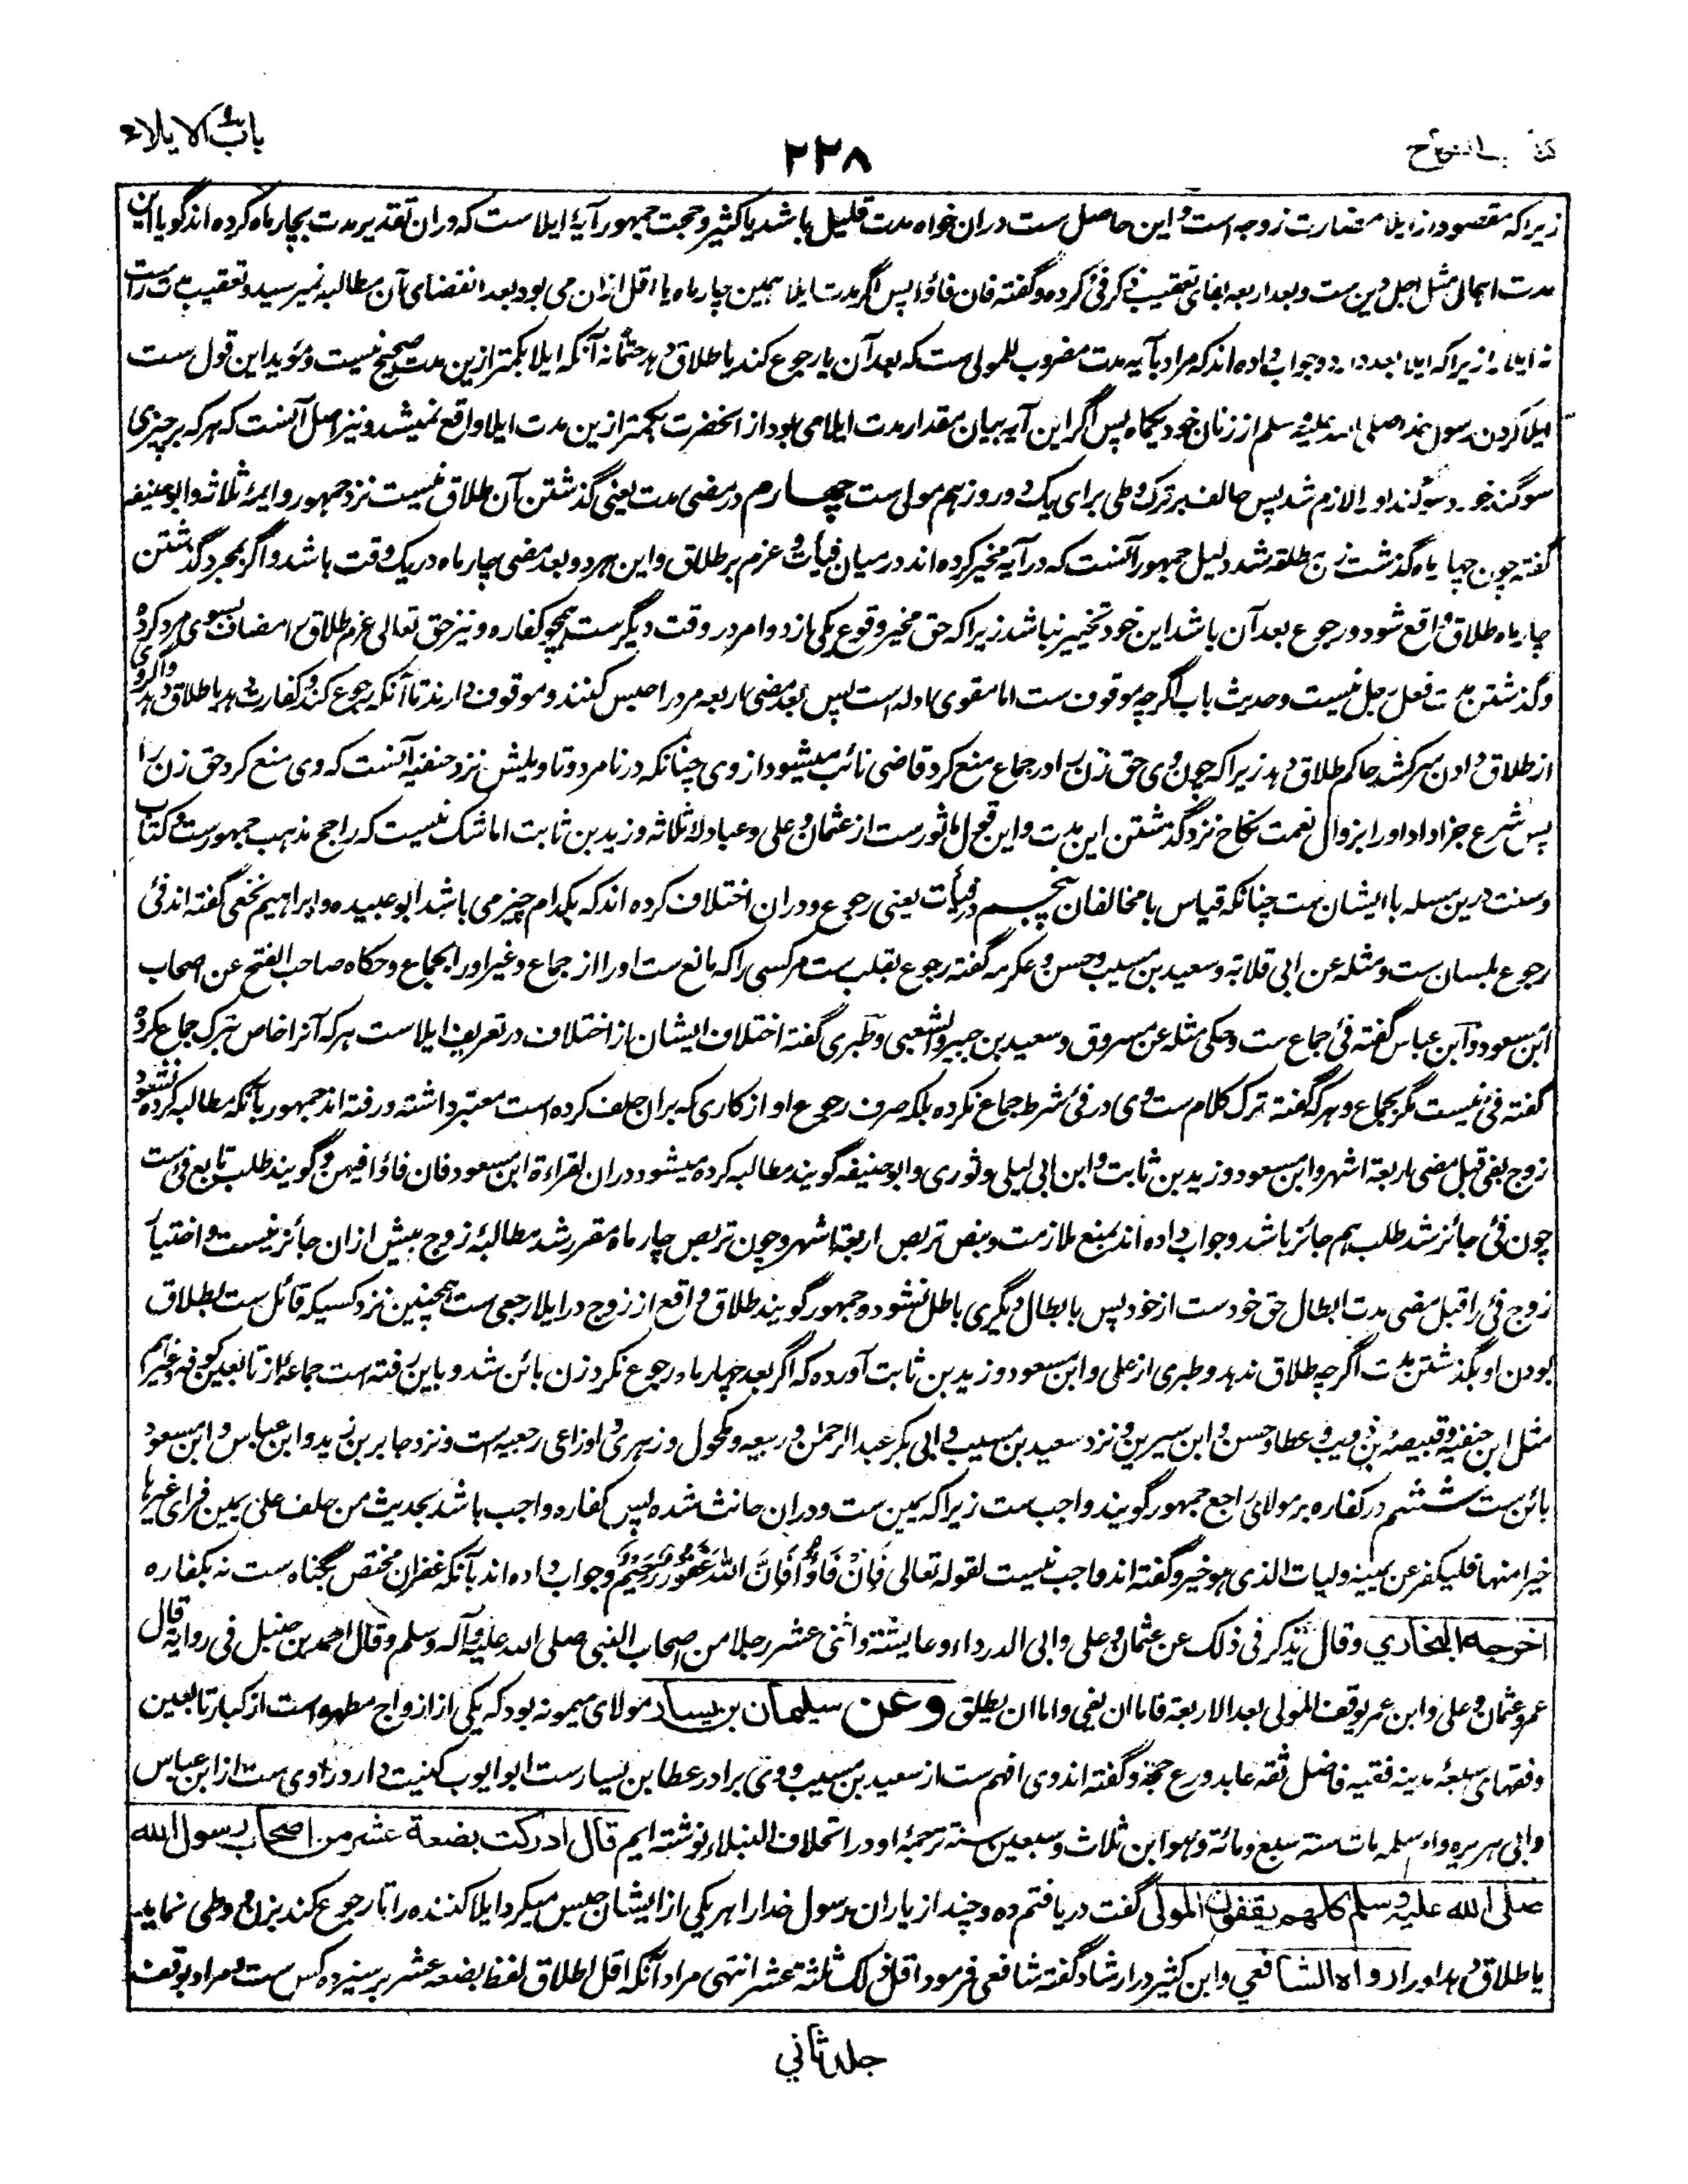 باب الایلاء
۲۳۸
زیراکه مقصود از ایلا مضارت زوجه است و این حاصل ست دران خواه مدت قلیل باشد یا کثیر و حجت جمهور آیهٔ ایلاست که دران تقدیر مدت بچار ماه کرده اند گویا این
مدت امهالی مثل اجل دین ست و بعد اربعه بفای تعقیب ذکر فئ کرده و گفته فان فاؤا پس اگر مدت ایلا همین چار ماه یا اقل ازان می بود بعد انقضای آن مطالبه نمیرسید و تعقیب مدت راست
نه ایلا را زیراکه ایلا بعد و جواب داده اند که مراد بآیه مدت مضروب للمولی ست که بعد آن یا رجوع کند یا طلاق دهد حتما نه آنکه ایلا بکمتر ازین مدت صحیح نیست و مؤید این قول ست
ایلا کردن رسول خدا صلی الله علیه وسلم از زنان خود یکماه پس اگر این آیه بیان مقدار مدت ایلا می بود از آنحضرت بکمتر ازین مدت ایلا واقع نمیشد و نیز اصل آنست که هر که بر چیزی
سوگند خورد سوگند او را لازم شد پس حالف بر ترک وطی برای یک دو روز هم مولی ست چهارم در مضی مدت یعنی گذشتن آن طلاق نیست نزد جمهور و ایمهٔ ثلاثه و ابو حنیفه
گفته چون چهار ماه گذشت زن مطلقه شد دلیل جمهور آنست که در آیه مخیر کرده اند در میان فیأت و عزم بر طلاق و این هر دو بعد مضی چار ماه در یک وقت باشد و اگر بمجرد گذشتن
چار ماه طلاق واقع شود و رجوع بعد آن باشد این خود تخییر نباشد زیراکه حق مخیر وقوع یکی از دو امر در وقت دیگر ست همچو کفاره و نیز حق تعالی عزم طلاق را مضاف بسوی مرد کرده
و گذشتن مدت فعل رجل نیست و حدیث باب اگرچه موقوف ست اما مقوی ادله است پس بعد مضی اربعه مرد را حبس کنند و موقوف دارند تا آنکه رجوع کند و کفارت دهد یا طلاق دهد و اگر وی
از طلاق دادن سرکشد حاکم طلاق دهد زیراکه چون وی حق زن را در جماع منع کرد قاضی نائب میشود از وی چنانکه در نامرد و تاویلش نزد حنفیه آنست که وی منع کرد حق زن را
پس شرع جزا داد او را بزوال نعمت نکاح نزد گذشتن این مدت و این قول ماثور ست از عثمان و علی و عبادلهٔ ثلاثه و زید بن ثابت اما شک نیست که راجح مذهب جمهور ست و کتاب
و سنت درین مسله با ایشان ست چنانکه قیاس با مخالفان پنجم در فیأت یعنی رجوع و دران اختلاف کرده اند که بکدام چیز می باشد ابو عبیده و ابراهیم نخعی گفته اند فئ
رجوع بلسان ست و مثله عن ابی قلابة و سعید بن مسیب و حسن و عکرمه گفته رجوع بقلب ست مر کسی را که مانع ست او را از جماع و غیر او را بجماع و حکاه صاحب الفتح عن اصحاب
ابن مسعود و ابن عباس گفته فئ جماع ست و حکی مثله عن مسروق و سعید بن جبیر و الشعبی و طبری گفته اختلاف ایشان از اختلاف در تعریف ایلاست هر که آنرا خاص بترک جماع کرده
گفته فئ نیست مگر بجماع و هر که گفته ترک کلام ست وی در فئ شرط جماع نکرده بلکه صرف رجوع او از کاری که بران حلف کرده است معتبر داشته و رفته اند جمهور بآنکه مطالبه کرده نشود
زوج بفئ قبل مضی اربعة اشهر و ابن مسعود و زید بن ثابت و ابن ابی لیلی و ثوری و ابو حنیفه گویند مطالبه کرده میشود دران لقراءة ابن مسعود فان فاؤا فیهن و گویند طلب تابع فئ ست
چون فئ جائز شد طلب هم جائز باشد و جواب داده اند بمنع ملازمت و بنص تربص اربعة اشهر و چون تربص چار ماه مقرر شد مطالبهٔ زوج پیش ازان جائز نیست و اختیار
زوج فئ را قبل مضی مدت ابطال حق خود ست از خود پس بابطال دیگری باطل نشود و جمهور گویند طلاق واقع از زوج در ایلا رجعی ست همچنین نزد کسیکه قائل ست بطلاق
بودن او بگذشتن مدت اگرچه طلاق ندهد و طبری از علی و ابن مسعود و زید بن ثابت آورده که اگر بعد چهار ماه رجوع نکرد زن بائن شد و باین رفته است جماعهٔ از تابعین کوفه و غیر هم
مثل ابن حنفیه و قبیصهٔ بن ذویب و عطا و حسن و ابن سیرین و نزد سعید بن مسیب و ابی بکر عبد الرحمن و ربیعه و مکحول و زهری و اوزاعی رجعیه است و نزد جابر بن زید و ابن عباس و ابن مسعود
بائن ست ششم در کفاره بر مولائ راجع جمهور گویند واجب ست زیراکه یمین ست و دران حانث شده پس کفاره واجب باشد بحدیث من حلف علی یمین فرای غیرها
خیرا منها فلیکفر عن یمینه ولیات الذی هو خیر و گفته اند واجب نیست لقوله تعالی فَاِنْ فَاؤُا فَاِنَّ اللهَ غَفُوْرٌ رَّحِیْمٌ و جواب داده اند بآنکه غفران مختص بگناه ست نه بکفاره
اخرجه البخاري وقال یذکر فی ذلک عن عثمان و علی وابی الدرداء و عایشة و اثنی عشر رجلا من اصحاب النبی صلی الله علیه وآله وسلم وقال احمد بن حنبل فی روایة قال
عمر و عثمان و علی و ابن عمر یوقف المولی بعد الاربعة فاما ان یفی واما ان یطلق وعن سلیمان بن یسار مولای میمونه بود که یکی از ازواج مطهره است از کبار تابعین
و فقهای سبعهٔ مدینه فقیه فاضل ثقه عابد ورع حجة و گفته اند وی افهم ست از سعید بن مسیب و وی برادر عطا بن یسار ست ابو ایوب کنیت دارد راوی ست از ابن عباس
و ابی هریره و ام سلمه مات سنة سبع و مائة و هو ابن ثلاث و سبعین سنة ترجمهٔ او در اتحاف النبلاء نوشته ایم قال ادرکت بضعة عشر من اصحاب رسول الله
صلی الله علیه وسلم کلهم یقفون المولی گفت دریافتم ده و چند از یاران رسول خدا را هر یکی از ایشان حبس میکرد ایلا کننده را تا رجوع کند بزن و وطی نماید
یا طلاق دهد او را رواه الشافعي و ابن کثیر در ارشاد گفته شافعی فرمود اقل ذلک ثلثة عشر انتهی مراد آنکه اقل اطلاق لفظ بضعه عشر بر سیزده کس ست و مراد بوقف
جلد ثاني